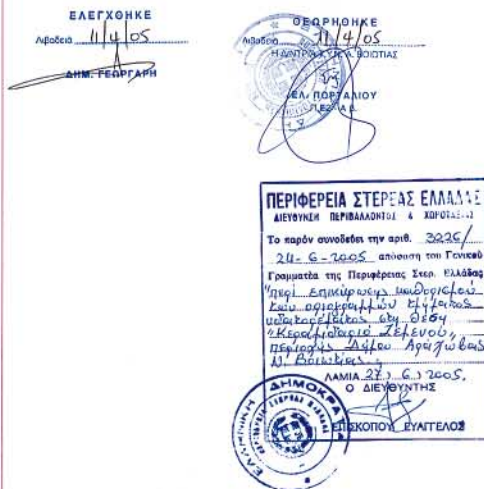 ΕΛΕΓΧΘΗΚΕ
Λιβαδειά 11/4/05
ΔΗΜ. ΓΕΩΡΓΑΡΗ
ΘΕΩΡΗΘΗΚΕ
Λιβαδειά 11/4/05
ΒΟΙΩΤΙΑΣ
ΕΛ. ΠΟΡΤΑΛΙΟΥ
ΠΕΡΙΦΕΡΕΙΑ ΣΤΕΡΕΑΣ ΕΛΛΑΔΑΣ
ΔΙΕΥΘΥΝΣΗ ΠΕΡΙΒΑΛΛΟΝΤΟΣ & ΧΩΡΟΤΑΞΙΑΣ
Το παρόν συνοδεύει την αριθ. 3226/
24-6-2005 απόφαση του Γενικού
Γραμματέα της Περιφέρειας Στερ. Ελλάδας
"περί επικύρωσης καθορισμού
των οριογραμμών τμήματος
υδατορέματος στη θέση
"Κεραμιδαριό Ζεμενού,
περιοχής Δήμου Αράχωβας
Ν. Βοιωτίας.
ΛΑΜΙΑ 27, 6, 2005,
Ο ΔΙΕΥΘΥΝΤΗΣ
ΕΠΙΣΚΟΠΟΥ ΕΥΑΓΓΕΛΟΣ
ΕΛΛΗΝΙΚΗ ΔΗΜΟΚΡΑΤΙΑ